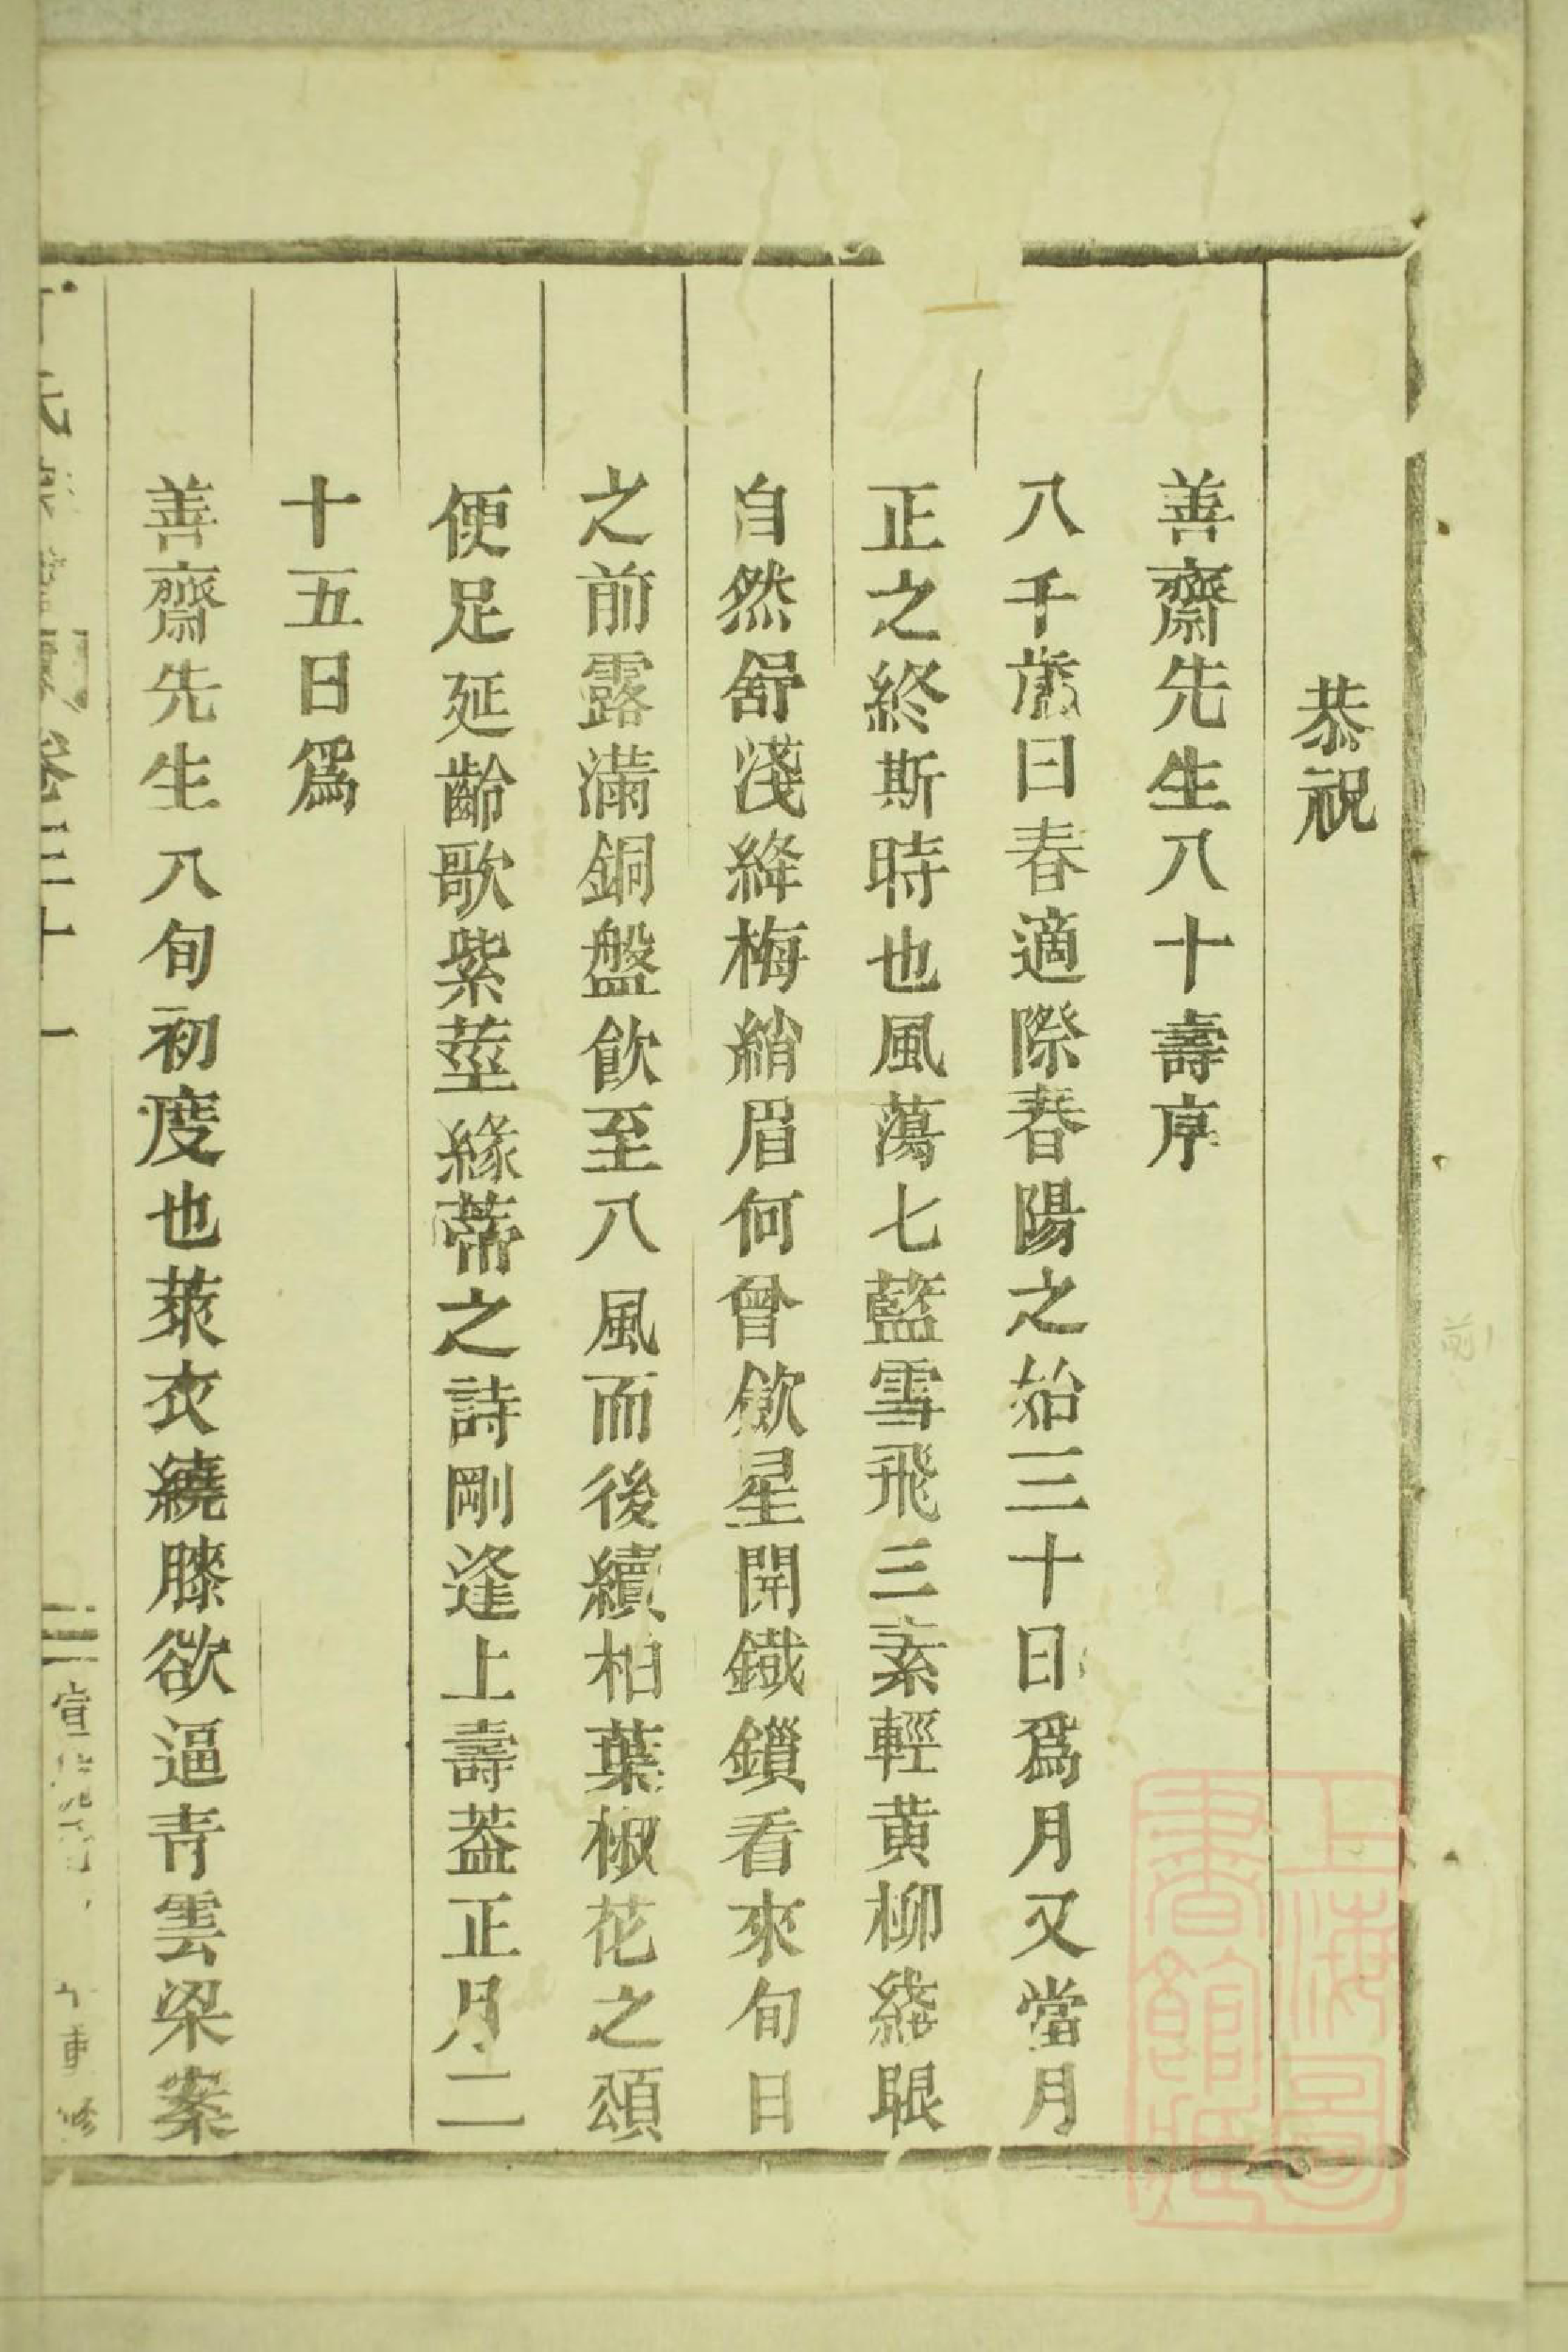 恭祝
善齋先生八十壽序
八千歲曰春適際春陽之始三十日爲月又當月
正之終斯時也風蕩七藍雪飛三素輕黄柳綻眼
自然舒淺絳梅綃眉何曾斂星開鐡鎖看來旬日
之前露滿銅盤飲至八風而後續柏葉椒花之頌
便足延齡歌紫莖緣蔕之詩剛逢上壽葢正月二
十五日爲
善齋先生八旬初度也萊衣繞膝欲逼青雲梁案
氏 卷三十一
宣 重修
上海圖書館藏